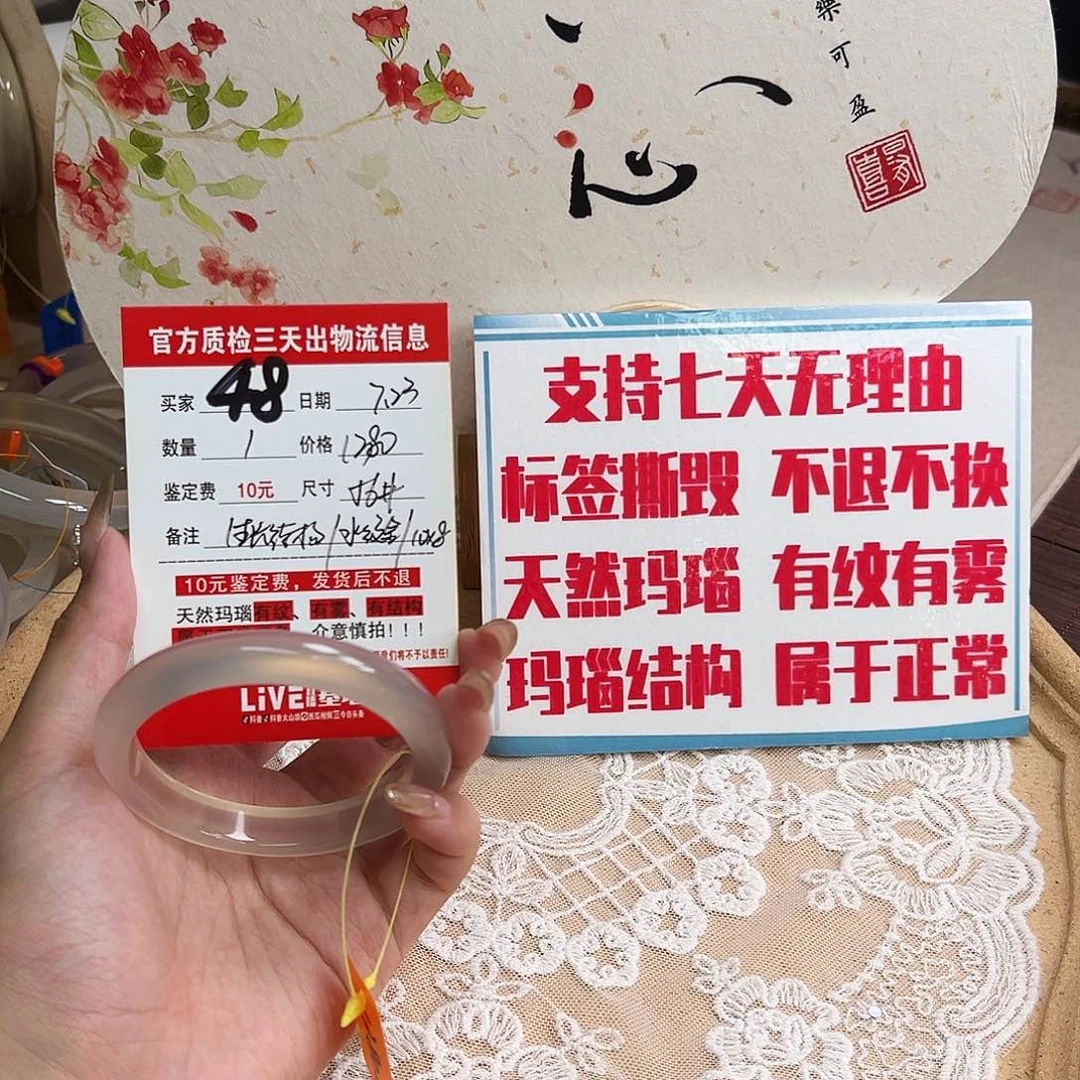 樂可盈
心
官方质检三天出物流信息
买家 48 日期 7.23
数量 1 价格 1280
鉴定费 10元 尺寸
备注 生长结构
10元鉴定费，发货后不退
天然玛瑙有纹、有雾、有结构
介意慎拍！！！
们将不予以责任!
LiVE
支持七天无理由
标签撕毁 不退不换
天然玛瑙 有纹有雾
玛瑙结构 属于正常